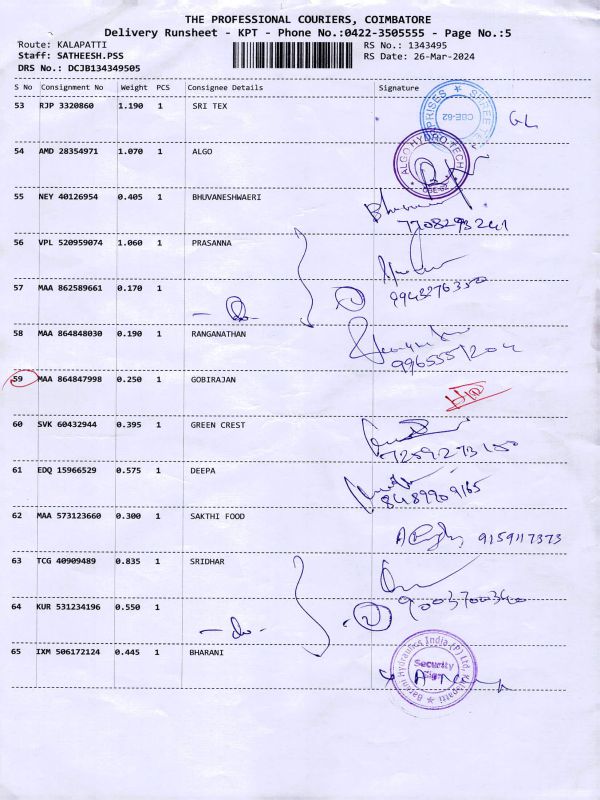 THE PROFESSIONAL COURIERS, COIMBATORE
Delivery Runsheet - KPT - Phone No.:0422-3505555 - Page No.:5
Route: KALAPATTI RS No.: 1343495
Staff: SATHEESH.PSS RS Date: 26-Mar-2024
DRS No.: DCJB134349505
S No Consignment No Weight PCS Consignee Details Signature
53 RJP 3320860 1.190 1 SRI TEX
CBE-62
54 AMD 28354971 1.070 1 ALGO
ALGO HYDRO TECH
55 NEY 40126954 0.405 1 BHUVANESHWAERI
7708293241
56 VPL 520959074 1.060 1 PRASANNA
57 MAA 862589661 0.170 1
- do - 2
58 MAA 864848030 0.190 1 RANGANATHAN
9965551204
59 MAA 864847998 0.250 1 GOBIRAJAN
60 SVK 60432944 0.395 1 GREEN CREST
7259273100
61 EDQ 15966529 0.575 1 DEEPA
8489909165
62 MAA 573123660 0.300 1 SAKTHI FOOD
9159117373
63 TCG 40909489 0.835 1 SRIDHAR
9003700340
64 KUR 531234196 0.550 1
- do - 2
65 IXM 506172124 0.445 1 BHARANI
Barani Hydraulics India (P) Ltd, Kalapatti
Security
Sign